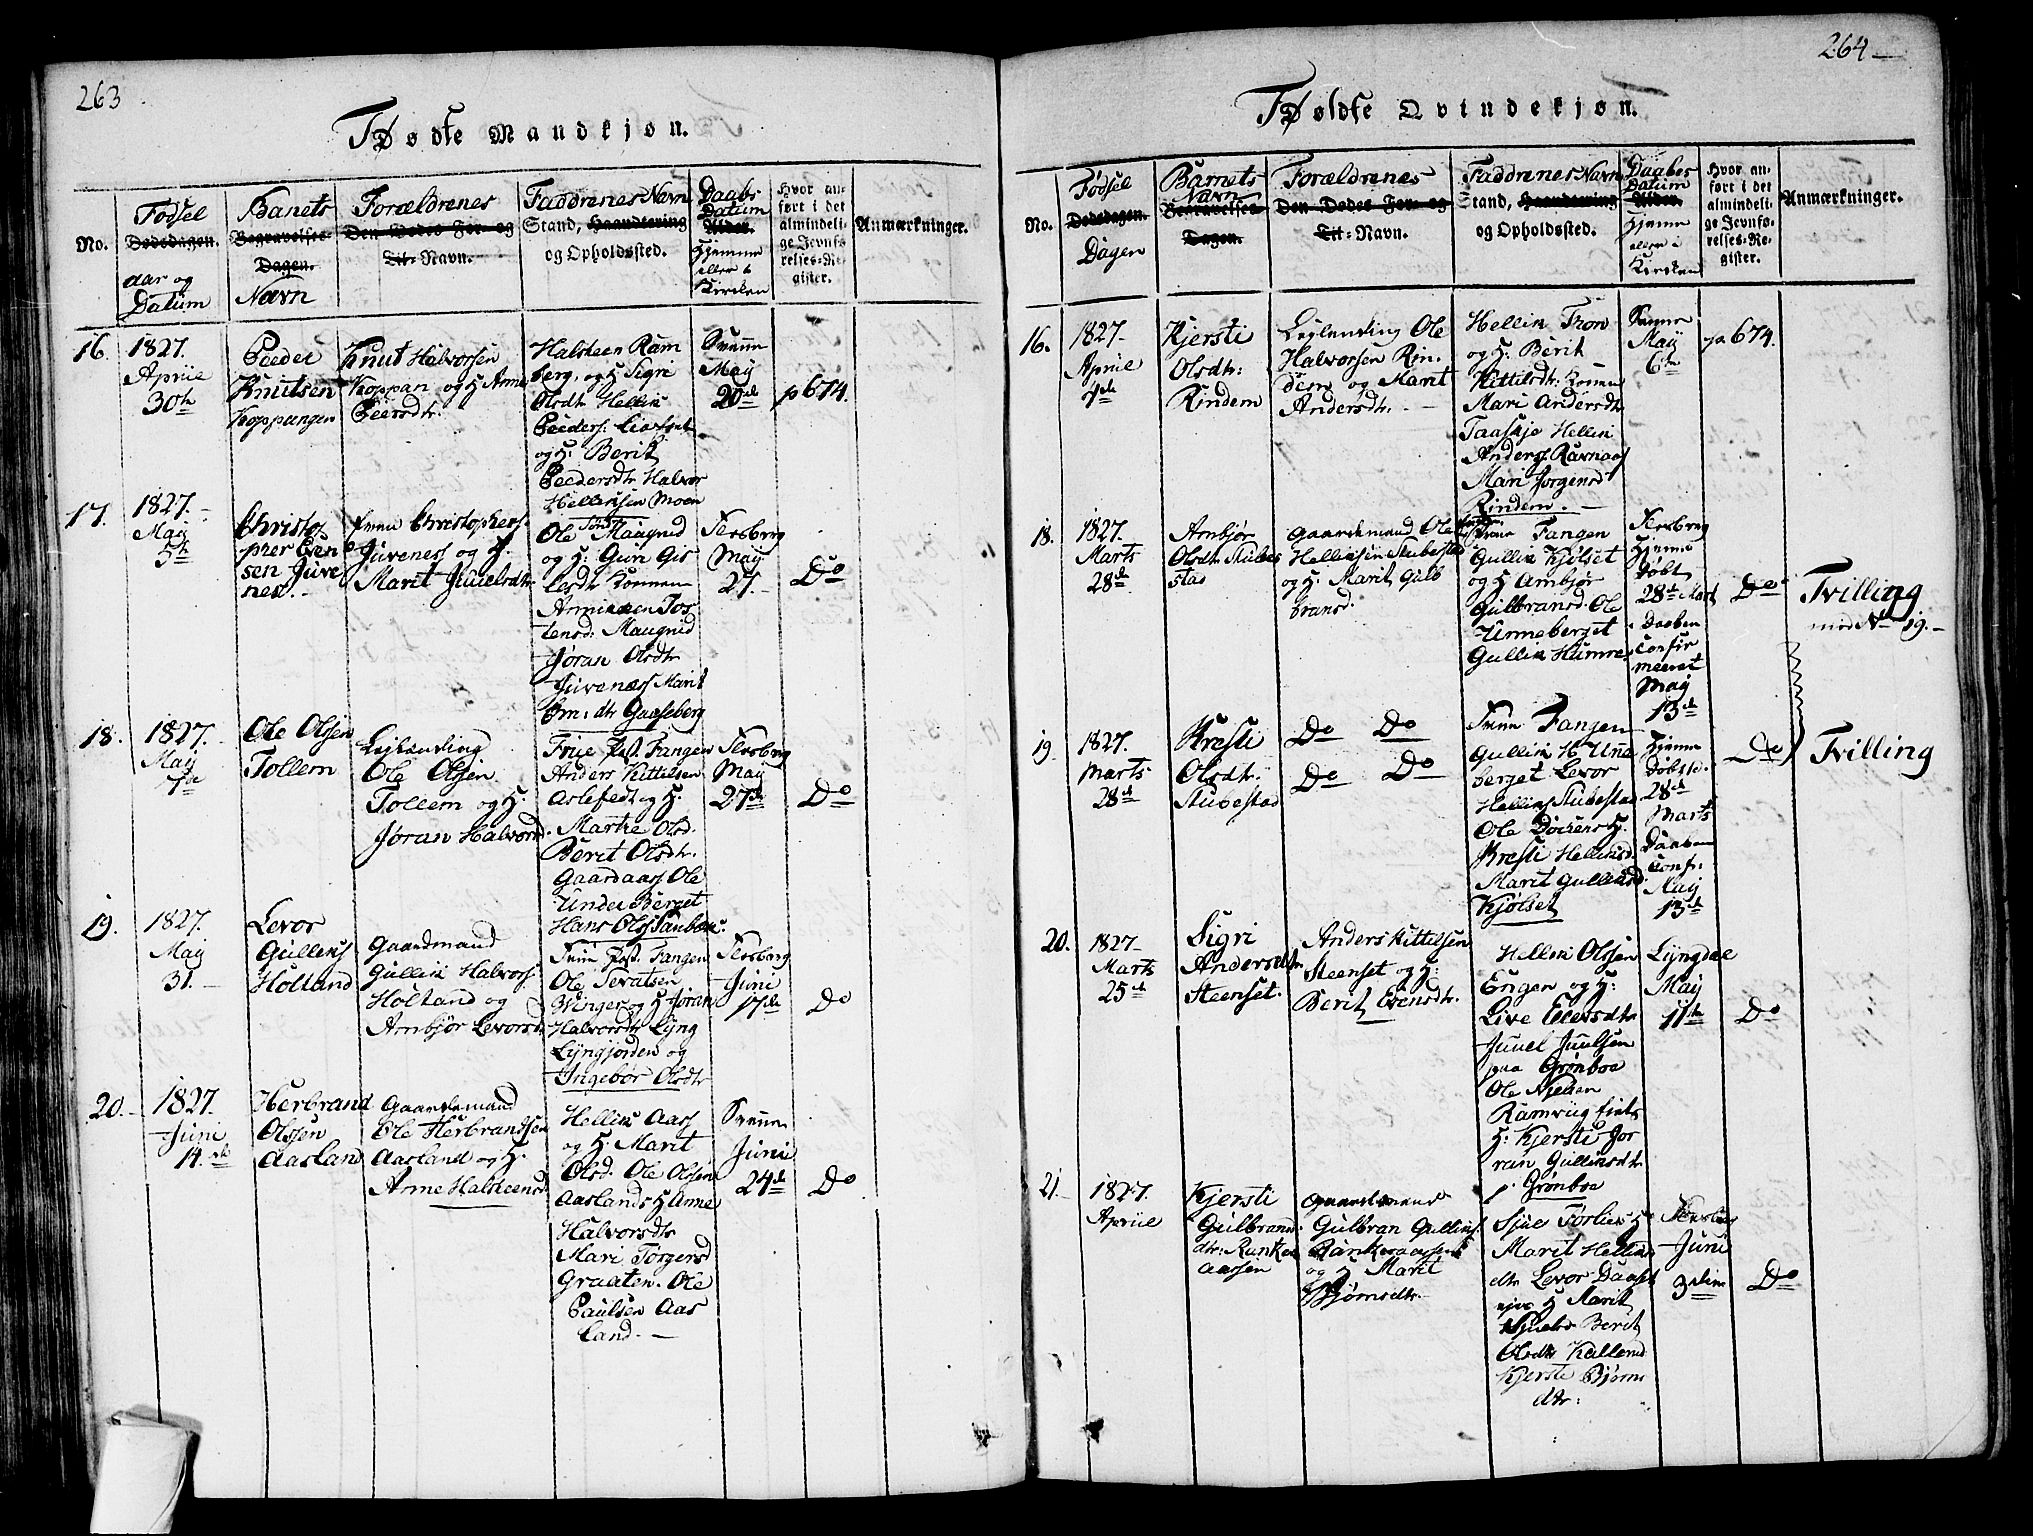 263
Fødte Mandkjøn.
No.
Fødsel
Dødsdagen.
aar og
Datum
Banets
Begravelses-
Dagen.
Navn
Forældrenes
Den Dødes For- og
Til-Navn.
Faddrenes Navn
Stand, Haandtering
og Opholdssted.
Daabs
Datum
Alder.
Hjemme
eller i
Kirken
Hvor an-
ført i det
almindeli-
ge Jevnfø-
relses-Re-
gister.
Anmærkninger.
16.
1827.
Apriil
30te
Peeder
Knutsen
Koppangen
Knut Halvorsen
Koppan og H Anne
Peersdtr.
Halsteen Ram
berg, og H Sigre
Olsdtr Hellik
Peeders:
og H: Berit
Peedersdtr Halvor
Helliksen Moen
Svenne
May
20de
p 674.
17.
1827.
Maj
5te
Christo
pher Even
sen Juve
nes.
Even Christophers.
Juvenes og H.
Marit Juuelsdtr
Ole Maugnid
og H: Guri Gis
lesdr Konnem
Tos
tensd: Maugnid
Jøran Olsdtr
Juvenæs Marit
Em: dtr Gaaseberg
Flesberg
May
27.
Do
18.
1827.
May
7de
Ole Olsen
Tollem
Lejlænding
Ole Olsen
Tollem og H.
Jøran Halvorsd.
Frue Past. Fangen
Anders Kittilsen
Aslefedt og H.
Marthe Olsd.
Berit Olsdtr.
Gaardaas Ole
Under Berget
Hans Ols Sandbæk.
Flesberg
May
27de
Do
19.
1827.
May
31.
Levor
Gulliks
Holtand
Gaardmand
Gullik Halvors.
Holtand og
Arnbjør Levorsd.
Frue Past. Fangen
Ole Tovatsen
Winger og H Jøran
Halvorsdtr Lÿng
Lÿngjorden og
Ingebør Olsdtr
Flesberg
Juni
17de
Do
20.
1827.
Juni
14.de
Herbrand
Olssen
Aasland
Gaardemand
Ole Herbrandsen
Aasland og H.
Anne Halsteensd.
Hellik Aas
og H. Marit
Olsd. Ole Olsen
Aaslands H Anne
Halvorsdtr
Mari Torgersd
Graaten. Ole
Paulsen Aas
land.
Svenne
Junii
24de
Do
264
Fødte Qvindekjøn.
No.
Fødsel
Dødsdagen.
Dagen
Barnets
Navn
Begravelses-
Dagen.
Forældrenes
Den Dødes For- og
Til-Navn.
Faddrenes Navn
Stand, Haandtering
og Opholdssted.
Daabes
Datum
Alder.
Hjemme
eller i
Kirken
Hvor an-
ført i det
almindeli-
ge Jevnfø-
relses-Re-
gister.
Anmærkninger.
16.
1827.
Apriil
4de
Kjersti
Olsdtr:
Rindem
Lejlending Ole
Halvorsen Rin.
dem og Marit
Andersdtr.
Hellik Fron
og H: Berit
Kittilsdtr: Konnem
Mari Andersdtr
Taaskje Hellik
Anders. Ravnaas
Mari Jørgensd
Rindem.
Svenne
May
6te
pa 674.
18.
1827.
Marts
28de
Arnbjør
Olsdtr Stubes
stad
Gaardemand Ole
Helliksen Stubestad
og H: Marit Gulb
bransd.
Frue Fangen
Gullik Kjølset
og H Arnbjør
Gulbransd. Ole
Unneberget
Gullik Humre.
Flesberg
Hjemme
døbt
28de Mart
Daaben
Confir
meeret
May
13de
Do
Tvilling
med No 19.
19
1827.
Marts
28de
Kresti
Olsdtr:
Stubestad
Do Do
Do Do
Frue Fangen
Gullik H Une
berget Levor
Helliks Stubestad
Ole H.
Kresti Helliksd.
Marit Gulliksd.
Kjølset
Hjemme
Døbt
28de
Marts
Daaben
Conf:
May
13de
Do
Tvilling
20.
1827
Marts
25de
Sigri
Andersdtr
Steenset.
Anders Kittilsen
Steenset og H:
Berit Evensdtr.
Hellik Olssen
Engen og H:
Live Eilersdtr
Juuel Juulsen
paa Grønboe
Ole Nielsen
H: Kjersti Jor
ran Gulliksdtr
p. Grønboe
Lÿngdal
May
11te
Do
21.
1827.
Apriil
Kjersti
Gulbrand:
dtr: Runke
aassen
Gaardemand
Gulbran Gulliks.
Runkeraassen
og H Marit
Bjørnsdtr.
Sjue Forlie H
Marit Hellik
dtr Levor Daaset
H Marit
Berit
Olsdtr Kallerud
Kjersti Bjørns
dtr:
Flesberg
Juni
3die
Do